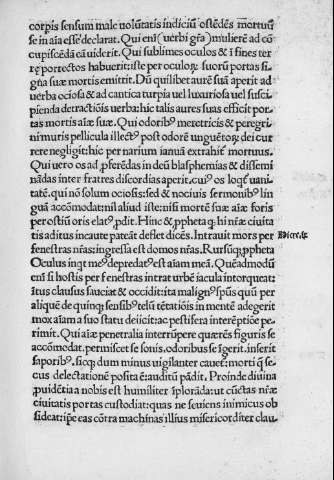 corpis sensum male uolūtatis indiciū ostēdēs mortuū
se in aīa esse declarat. Qui enī (uerbi gr̄a) mulierē ad con
cupiscēdā cā uiderit. Qui sublimes oculos & ī fines ter
rę porrectos habuerit: iste per oculoꝝ suoꝝ portas si
gna suæ mortis emittit. Dū quilibet aurē suā aperit ad
uerba ociosa & ad cantica turpia uel luxuriosa uel susci
pienda detractiōis uerba: hic tales aures suas efficit por
tas mortis aīæ suæ. Qui odoribꝰ meretricis & peregri
ni muris pellicula illectꝰ post odorē unguētoꝝ eī curre
re negligit: hic per narium ianuā extrahit̄ mortuus.
Qui uero os ad ꝓferēdas in deū blasphemias & dissemi
nādas inter fratres discordias aperit. cuiꝰ os loqt̄ uani
tatē. qui nō solum ociosis: sed & nociuis sermonibꝰ lin
guā accōmodat: nil aliud iste: nisi mortē suæ aīæ foris
per ostiū oris elatꝰ ꝓdit. Hinc & ꝓpheta qꝫ hī nr̄æ ciuita
tis aditus incaute pateāt deflet dicēs. Intrauit mors per
fenestras nr̄as: ingressa est domos nr̄as. Rursūqꝫ ꝓpheta
Oculus inqt meꝰ depredatꝰ est aīam meā. Quēadmodū
enī si hostis per fenestras intrat urbē iacula intorqueat:
ītus clausus sauciat & occidit: ita malignꝰ spūs quū per
aliquē de quinqꝫ sensibꝰ telū tētatiōis in mentē adegerit
mox aīam a suo statu deiicit: ac pestifera interēptiōe pe
rimit. Qui aīæ penetralia interrūpere quærēs figuris se
accōmodat. permiscet se sonis. odoribus se īgerit. inserit
saporibꝰ. sicqꝫ dum minus uigilanter cauet: mortī qͣ se
cus delectationē posita ē: auditū pādit. Proinde diuina
ꝓuidētia a nobis est humiliter īplorāda: ut cūctas nr̄æ
ciuitatis portas custodiat: quas ne seuiens inimicus ob
sideat: ip̄e eas cōtra machinas illius misericorditer clau